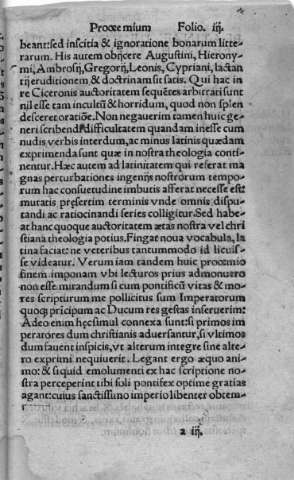 Prooemium Folio. iij.
beant: sed inscitia & ignoratione bonarum litte-
rarum. His autem obijcere Augustini, Hierony-
mi, Ambrosij, Gregorij, Leonis, Cypriani, lactan
tij eruditionem & doctrinam sit satis. Qui hac in
re Ciceronis auctoritatem sequẽtes arbitrati sunt
nil esse tam incultũ & horridum, quod non splen
desceret oratiõe. Non negauerim tamen huic ge-
neri scribendi difficultatem quandam inesse cum
nudis verbis interdum, ac minus latinis quædam
exprimenda sunt quæ in nostra theologia conti-
nentur. Hæc autem ad latinitatem qui referat ma
gnas perturbationes ingenijs nostrorum tempo-
rum hac consuetudine imbutis afferat necesse est
mutatis presertim terminis vnde omnis dispu-
tandi ac ratiocinandi series colligitur. Sed habe-
at hanc quoque auctoritatem ætas nostra vel chri
stiana theologia potius. Fingat noua vocabula, la
tina faciat: ne veteribus tantummodo id licuis-
se videatur. Verum iam tandem huic prooemio
finem imponam vbi lecturos prius admonuero
non esse mirandum si cum pontificũ vitas & mo-
res scripturum me pollicitus sum Imperatorum
quoqȝ pricipum ac Ducum res gestas inseruerim:
Adeo enim hęc simul connexa sunt: si primos im
peratores dum christianis aduersantur, si vltimos
dum fauent inspicis, vt alterum integre sine alte-
ro exprimi nequiuerit. Legant ergo æquo ani-
mo: & si quid emolumenti ex hac scriptione no-
stra perceperint tibi soli pontifex optime gratias
agant: cuius sanctissimo imperio libenter obtem-
a iij